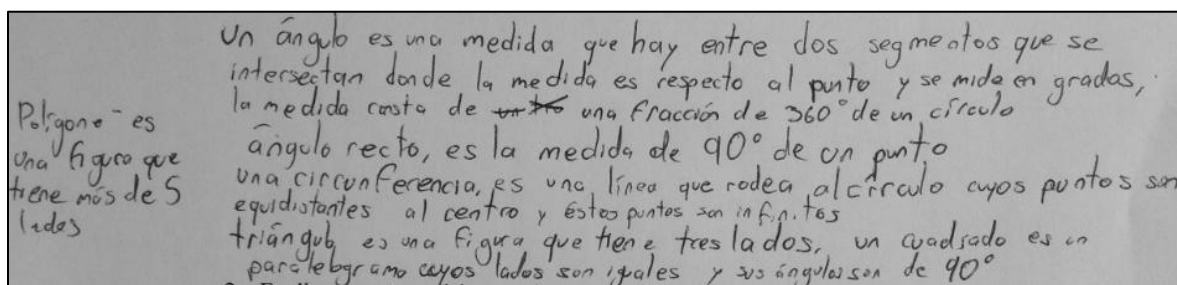 Polígono es
una figura que
tiene más de 5
lados
Un ángulo es una medida que hay entre dos segmentos que se
intersectan donde la medida es respecto al punto y se mide en grados,
la medida consta de una fracción de 360° de un círculo
ángulo recto, es la medida de 90° de un punto
una circunferencia, es una línea que rodea al círculo cuyos puntos son
equidistantes al centro y éstos puntos son infinitos
triángulo, es una figura que tiene tres lados, un cuadrado es un
paralelogramo cuyos lados son iguales y sus ángulos son de 90°